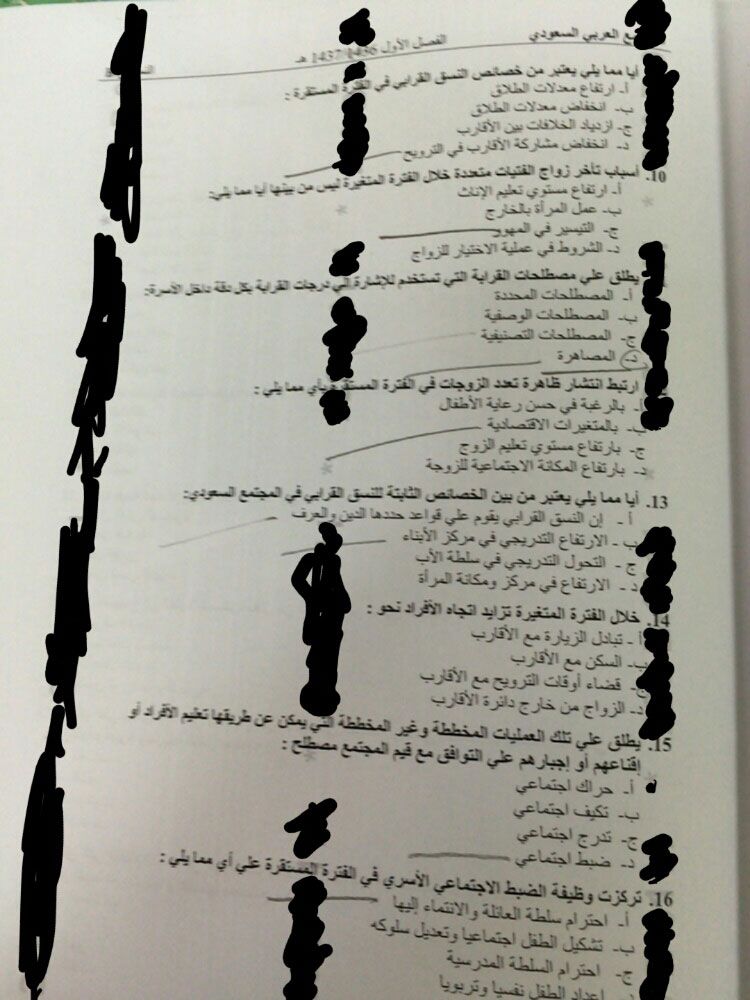 ع العربي السعودي
الفصل الأول 1437/1436 هـ
أيا مما يلي يعتبر من خصائص النسق القرابي في الفترة المستقرة :
أ- ارتفاع معدلات الطلاق
ب- انخفاض معدلات الطلاق
ج- ازدياد الخلافات بين الأقارب
د- انخفاض مشاركة الأقارب في الترويح
10. أسباب تأخر زواج الفتيات متعددة خلال الفترة المتغيرة ليس من بينها أيا مما يلي:
أ- ارتفاع مستوي تعليم الإناث
ب- عمل المرأة بالخارج
ج- التيسير في المهور
د- الشروط في عملية الاختيار للزواج
يطلق علي مصطلحات القرابة التي تستخدم للإشارة إلي درجات القرابة بكل دقة داخل الأسرة:
أ- المصطلحات المحددة
ب- المصطلحات الوصفية
ج- المصطلحات التصنيفية
د- المصاهرة
ارتبط انتشار ظاهرة تعدد الزوجات في الفترة المستقرة بأي مما يلي :
أ- بالرغبة في حسن رعاية الأطفال
ب- بالمتغيرات الاقتصادية
ج- بارتفاع مستوي تعليم الزوج
د- بارتفاع المكانة الاجتماعية للزوجة
13. أيا مما يلي يعتبر من بين الخصائص الثابتة للنسق القرابي في المجتمع السعودي:
أ - إن النسق القرابي يقوم علي قواعد حددها الدين والعرف
ب- الارتفاع التدريجي في مركز الأبناء
ج - التحول التدريجي في سلطة الأب
د - الارتفاع في مركز ومكانة المرأة
14. خلال الفترة المتغيرة تزايد اتجاه الأفراد نحو :
أ - تبادل الزيارة مع الأقارب
ب- السكن مع الأقارب
ج- قضاء أوقات الترويح مع الأقارب
د- الزواج من خارج دائرة الأقارب
15. يطلق علي تلك العمليات المخططة وغير المخططة التي يمكن عن طريقها تعليم الأفراد أو
إقناعهم أو إجبارهم علي التوافق مع قيم المجتمع مصطلح :
أ- حراك اجتماعي
ب- تكيف اجتماعي
ج- تدرج اجتماعي
د- ضبط اجتماعي
16. تركزت وظيفة الضبط الاجتماعي الأسري في الفترة المستقرة علي أي مما يلي :
أ- احترام سلطة العائلة والانتماء إليها
ب- تشكيل الطفل اجتماعيا وتعديل سلوكه
ج- احترام السلطة المدرسية
إعداد الطفل نفسيا وتربويا